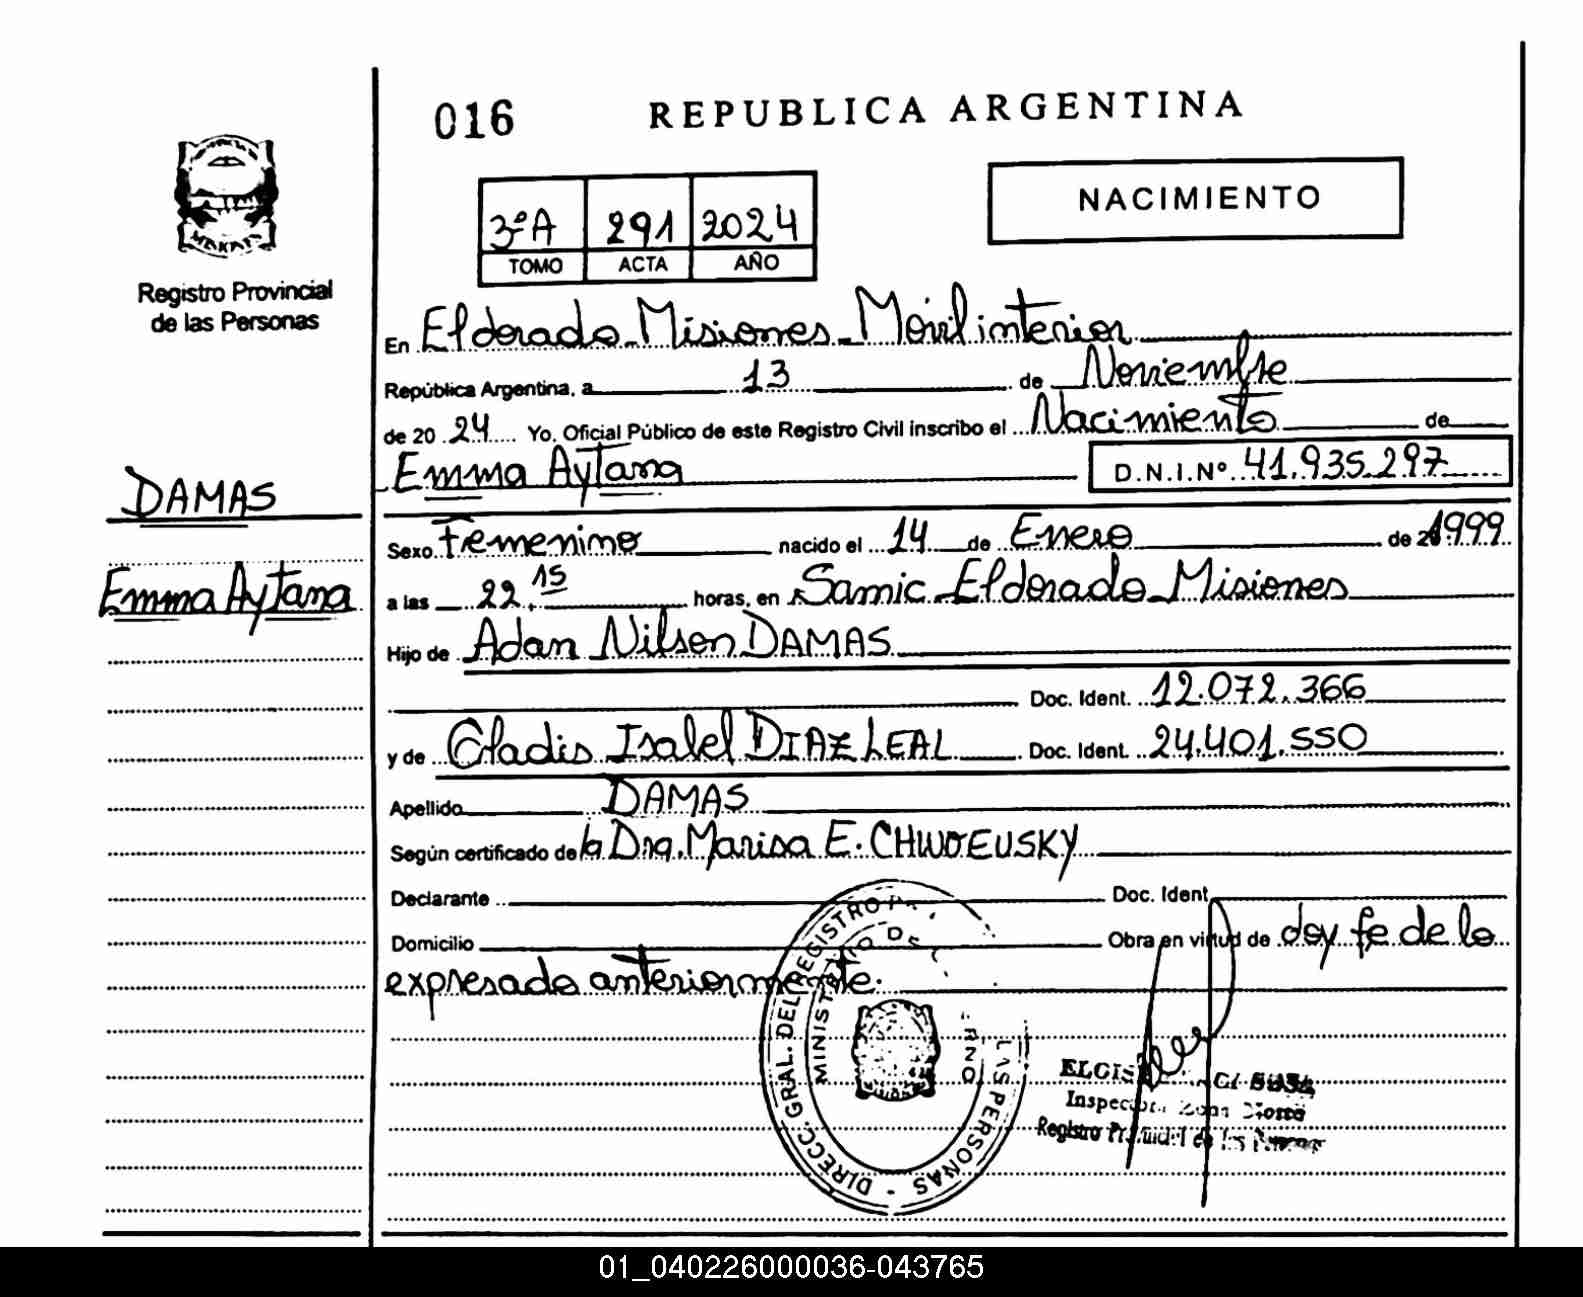 016
REPUBLICA ARGENTINA
3ºA 291 2024
TOMO ACTA AÑO
NACIMIENTO
Registro Provincial
de las Personas
En Eldorado-Misiones-Móvil interior
República Argentina, a 13 de Noviembre
de 20 24 Yo, Oficial Público de este Registro Civil inscribo el Nacimiento de
Emma Aytana D.N.I.Nº 41.935.297
DAMAS
Emma Aytana
Sexo Femenino nacido el 14 de Enero de 1999
a las 22.15 horas, en Samic-Eldorado-Misiones
Hijo de Adan Nilson DAMAS
Doc. Ident. 12.072.366
y de Gladis Isabel DIAZ LEAL Doc. Ident. 24.401.550
Apellido DAMAS
Según certificado de la Dra. Marisa E.
Declarante Doc. Ident.
Domicilio Obra en virtud de doy fe de lo
expresado anteriormente.
DIRECC. GRAL. DEL REGISTRO LAS PERSONAS
MINISTERIO DE
Registro
01_040226000036-043765